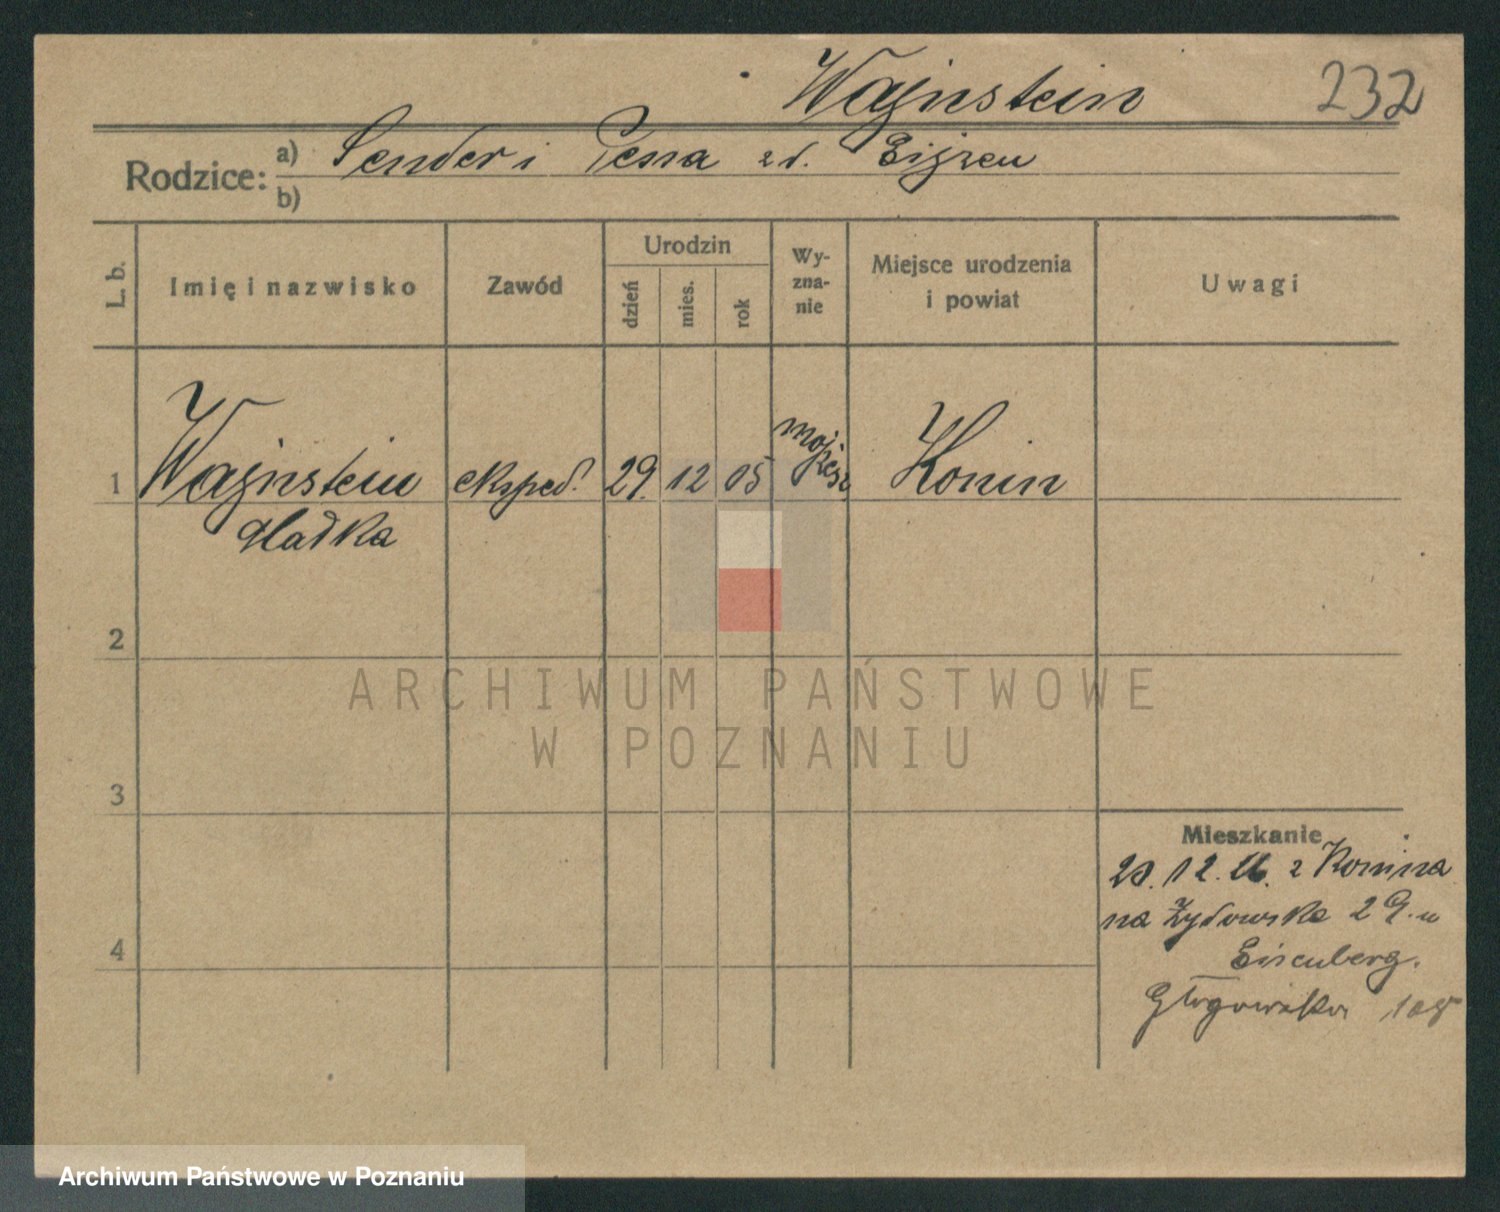 Wajnstein 232
Rodzice: a) Sender i Pesa zd. Eijzen
b)
L. b. Imię i nazwisko Zawód Urodzin dzień mies. rok Wy-zna-nie Miejsce urodzenia i powiat Uwagi
1 Wajnstein eksped. 29. 12 05 mojżesz Konin
Hadka
2
ARCHIWUM PAŃSTWOWE
W POZNANIU
3
Mieszkanie
12. z Konina
na Żydowska 29. u
4
Eisenberg.
Głogowska 108
Archiwum Państwowe w Poznaniu